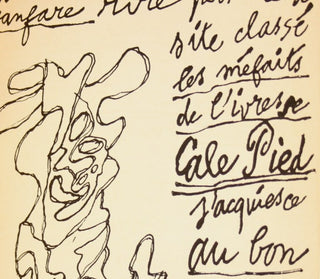 fanfare rire
site classé
les méfaits
de l'ivresse
Cale Pied
j'acquiesce
au bon